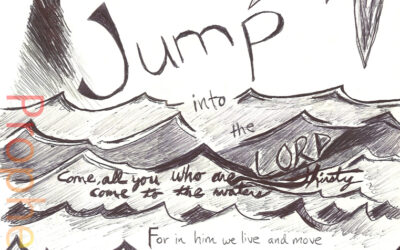 Jump
into
the
LORD
Come, all you who are thirsty
come to the waters
For in him we live and move
Prophe